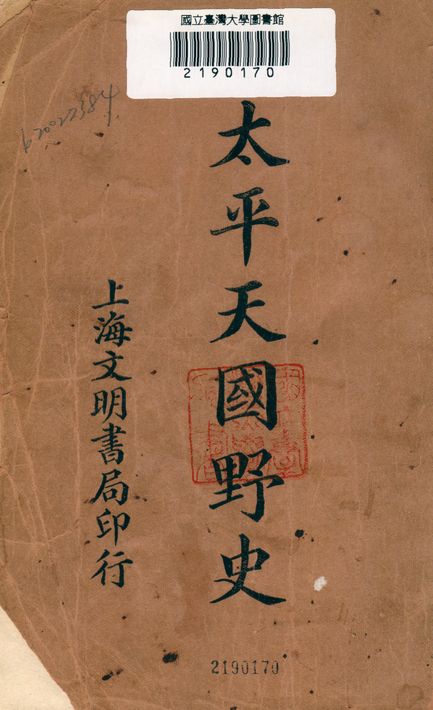 國立臺灣大學圖書館
2190170
太平天國野史
上海文明書局印行
2190170